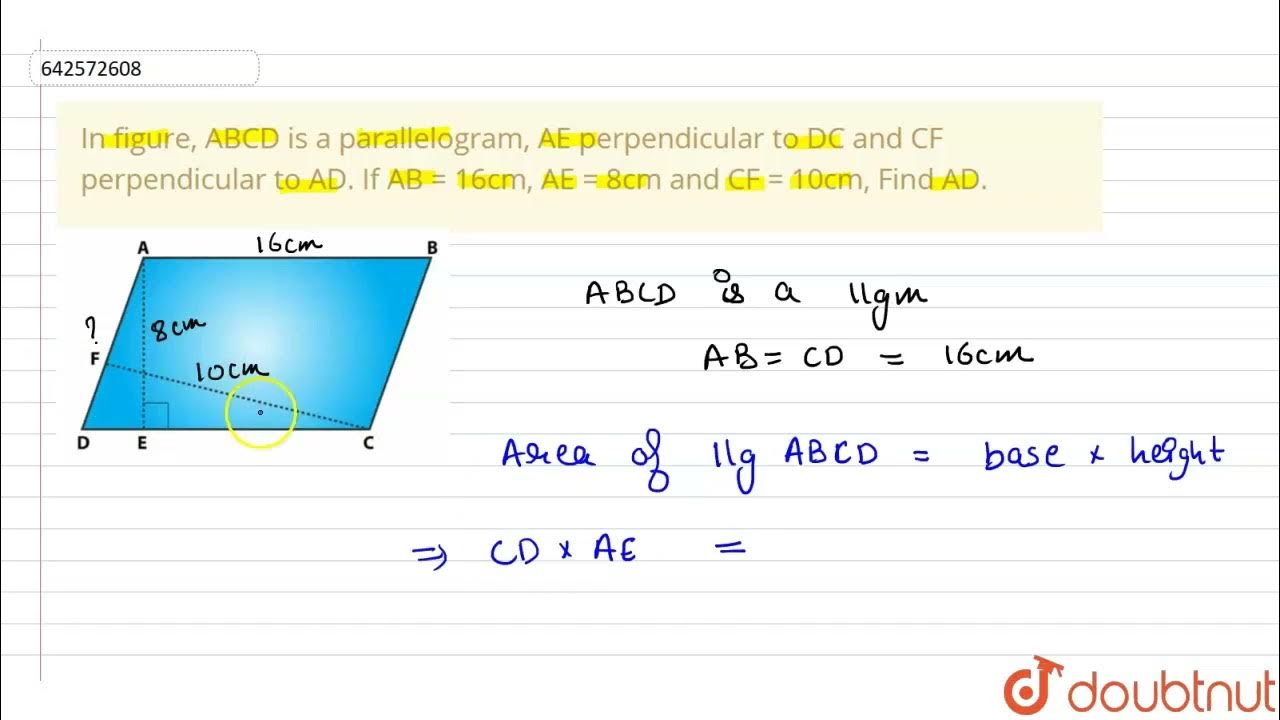 642572608
In figure, ABCD is a parallelogram, AE perpendicular to DC and CF
perpendicular to AD. If AB = 16cm, AE = 8cm and CF = 10cm, Find AD.
A 16cm B
?
8cm
F
10cm
D E C
ABCD is a llgm
AB = CD = 16cm
Area of llg ABCD = base × height
⇒ CD × AE =
doubtnut